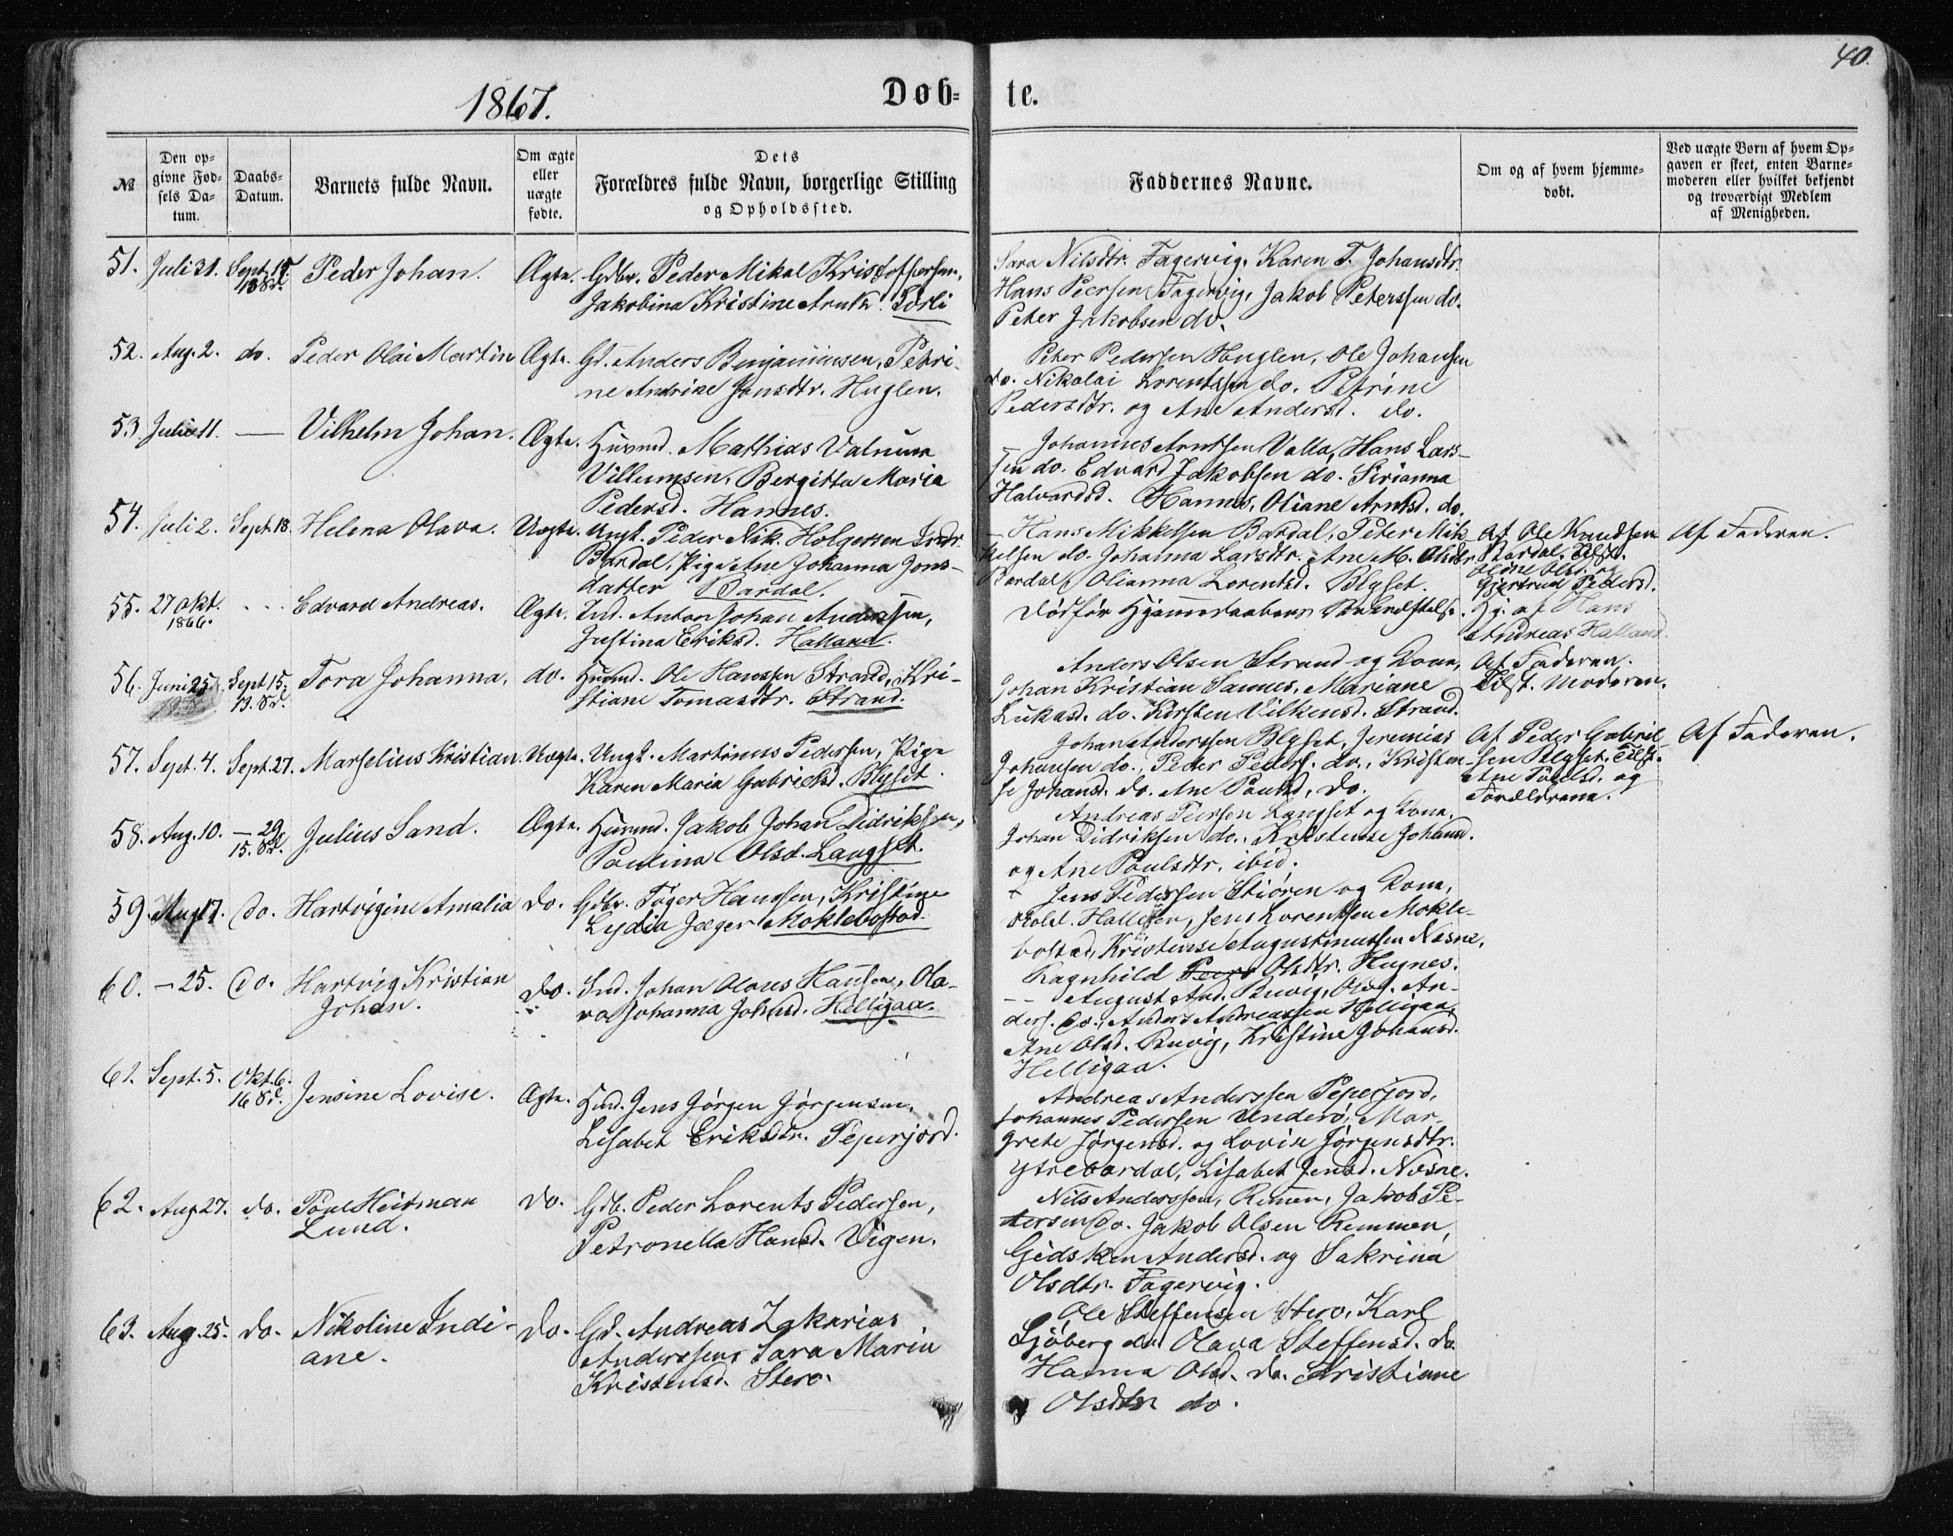 40.
1867.
Døb=
te.
№
Den op=
givne Fød=
sels Da=
tum.
Daabs=
Datum.
Barnets fulde Navn.
Om ægte
eller
uægte
fødte.
Dets
Forældres fulde Navn, borgerlige Stilling
og Opholdssted.
Faddernes Navne.
Om og af hvem hjemme=
døbt.
Ved uægte Børn af hvem Op=
gaven er skeet, enten Barne=
moderen eller hvilket bekjendt
og troværdigt Medlem
af Menigheden.
51. Juli 31. Sept. 15. Peder Johan. Ægte. Gdbr. Peder Mikal Kristoffersen,
Jakobina Kristine Arntd. Sørli
Sara Nilsdtr. Fagervig, Karen F. Johansdtr.
Hans Peersen Fagervig, Jakob Peterssen do.
Peter Jakobsen do.
52. Aug. 2. do. Peder Olai Martin Ægte. Gd. Anders Benjaminsen, Petri-
ne Andrine Jonsdtr. Huglen.
Peter Pedersen Huglen, Ole Johansen
do. Nikolai Lorentssen do. Petrine
Pedersdtr. og Ane Andersd. do.
53. Juli 11. — Vilhelm Johan. Ægte. Huusmd. Mathias Valnum
Villumsen, Bergitta Maria
Pedersd. Hannes.
Johannes Arntsen Valla, Hans Lars-
sen do. Edvard Jakobsen do. Sirianna
Halvardsd. Hannes, Oliane Arntsd. do.
54. Juli 2. Sept. 18. Helena Olava. Uægte. Ungk. Peder Nik. Holgersen Indr.
Bardal, Pige Ane Johanna Jons-
datter Bardal.
Hans Mikkelsen Bardal, Peter Mik-
kelsen do. Johanna Larsdtr. Ane M. Olsdtr.
Bardal, Olianna Lorentsd. Blyset.
Af Ole Knudsen
Bardal. Tilst.
Oline Olsd. og
Gjertrud Pedersd.
Af Faderen.
55. 27 Okt.
1866.
Edvard Andreas. Ægte. Ind. Anton Johan Andersen,
Justina Eriksd. Halland.
Død før Hjemmedaabens Stadfæstelse.
Hj. af Hans
Andreas Halland.
56. Juni 25. Sept 15.
13. S. d.
Tora Johanna. do. Huusmd. Ole Hanssen Strand, Kri-
stiane Tomasdtr. Strand.
Anders Olsen Strand og Kone,
Johan Kristian Sannes, Mariane
Lukasd. do. Kirsten Vilkensd. Strand.
Af Faderen.
Tilst. Moderen.
57. Sept. 4. Sept. 27. Marselius Kristian. Uægte. Ungk. Martinus Pedersen, Pige
Karen Maria Gabrielsd. Blyset.
Johan Anderssen Blyset, Jeremias
Johansen do., Peder Peders. do., Kristen-
se Johansd. do. Ane Paulsd. do.
Af Peder Gabriel-
sen Blyset. Tilst.
Ane Paulsd. og
Forældrene.
Af Faderen.
58. Aug. 10. — 29.
15. S. d.
Julius Sand. Ægte. Huusmd. Jakob Johan Didriksen,
Paulina Olsd. Langset.
Andreas Peersen Langset og Kone,
Johan Didriksen do., Kristense Johansd.
og Ane Poulsdtr. ibid.
59. Aug. 17. do. Hartvigine Amalia do. Gdbr. Tøger Hanssen, Kristine
Lydia Jæger Moklebostad.
Jens Pedersen Stiøren og Kone,
Hallesen, Jens Lorentsen Mokle-
bostad, Kristense Augustinussen Nesne,
Ragnhild Olsdtr. Hugnes.
60. — 25. do. Hartvig Kristian
Johan.
do. Ind. Johan Olaus Hansen, Ola-
va Johanna Johnsd. Helligaa.
August And. Buvig, Ols. An-
ders. do., Anders Andreassen Helligaa,
Ane Olsd. Buvig, Kristine Johansd.
Helligaa.
61. Sept. 5. Okt. 6.
16 S. d.
Jensine Lovise. Ægte. Huusmd. Jens Jørgen Jørgensen,
Lisabet Eriksdtr. Peperjord.
Andreas Anderssen Peperjord,
Johannes Pedersen Underø, Mar-
grete Jørgensd. og Lovise Jørgensdtr.
Ytrebardal, Lisabet Jensd. Nesne.
62. Aug. 27. do. Paul Heitman
Lund.
do. Gdb. Peder Lorents Pedersen,
Petronella Hansd. Vigen.
Nils Anderssen, Remen, Jakob Pe-
tersen do. Jakob Olsen Remmen,
Gidsken Andersd. og Sakrina
Olsdtr. Fagervig.
63. Aug. 25. do. Nikoline Indi-
ane.
do. Gd. Andreas Zakarias
Anderssen, Sara Maria
Kristensd. Stero.
Ole Steffensen Stero, Karl
Sjøberg do. Olava Steffensd. do
Hanna Olsd. do. Kristiane
Olsdtr do.